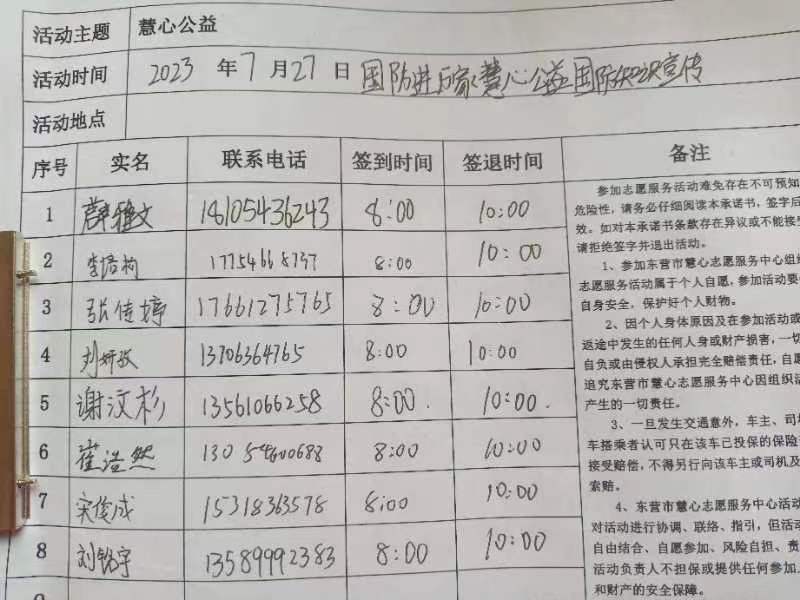 活动主题 慧心公益
活动时间 2023 年 7 月 27 日 国防进万家慧心公益国防知识宣传
活动地点
序号 实名 联系电话 签到时间 签退时间 备注
1 薛雅文 18105436243 8:00 10:00
2 李培 8:00 10:00
3 张佳婷 17661275765 8:00 10:00
4 刘 13706364765 8:00 10:00
5 谢汶杉 13561066258 8:00. 10:00.
6 崔浩然 13054600688 8:00 10:00
7 宋俊成 15318363578 8:00 10:00
8 刘铭宇 13589992383 8:00 10:00
参加志愿服务活动难免存在不可预知
危险性，请务必仔细阅读本承诺书，签字后
效。如对本承诺书条款存在异议或不能接受
请拒绝签字并退出活动。
1、参加东营市慧心志愿服务中心组织
志愿服务活动属于个人自愿，参加活动要
自身安全，保护好个人财物。
2、因个人身体原因及在参加活动或
返途中发生的任何人身或财产损害，一切
自负或由侵权人承担完全赔偿责任，自愿
追究东营市慧心志愿服务中心因组织活
产生的一切责任。
3、一旦发生交通意外，车主、司机
车搭乘者认可只在该车已投保的保险
接受赔偿，不得另行向该车主或司机及
索赔。
4、东营市慧心志愿服务中心活动
对活动进行协调、联络、指引，但活动
自由结合、自愿参加、风险自担、责
活动负责人不担保或提供任何参加人
和财产的安全保障。